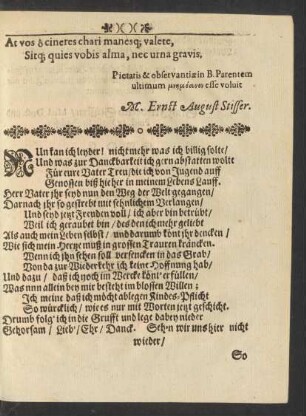 At vos ô cineres chari manesq́; valete,
Sitq́; quies vobis alma, nec urna gravis.
Pietatis & observantiæ in B. Parentem
ultimum μνημόσυνον esse voluit
M. Ernst August Stisser.
NUn kan ich leyder! nichtmehr was ich billig solte/
Und was zur Danckbarkeit ich gern abstatten wolt
Für eure Vater Treu/die ich von Jugend auff
Genossen biß hieher in meinem Lebens Lauff.
Herr Vater ihr seyd nun den Weg der Welt gegangen/
Darnach ihr so gestrebt mit sehnlichem Verlangen/
Und seyd jetzt Freuden voll/ ich aber bin betrübt/
Weil ich geraubet bin/ des den ich mehr geliebt
Als auch mein Leben selbst/ und darumb könt ihr dencken/
Wie sich mein Hertze muß in grossen Trauren kräncken.
Wenn ich ihn sehen soll versencken in das Grab/
Von da zur Wiederkehr ich keine Hoffnung hab/
Und dazu/ daß ich noch im Wercke könt' erfüllen/
Was nun allein bey mir besteht im blossen Willen;
Ich meine daß ich möcht ablegen Kindes-Pflicht
So würcklich/ wie es nur mit Worten jetzt geschicht.
Drumb folg' ich in die Grufft und lege dabey nieder
Gehorsam/ Lieb'/ Ehr/ Danck. Sehn wir uns hier nicht
wieder/
So